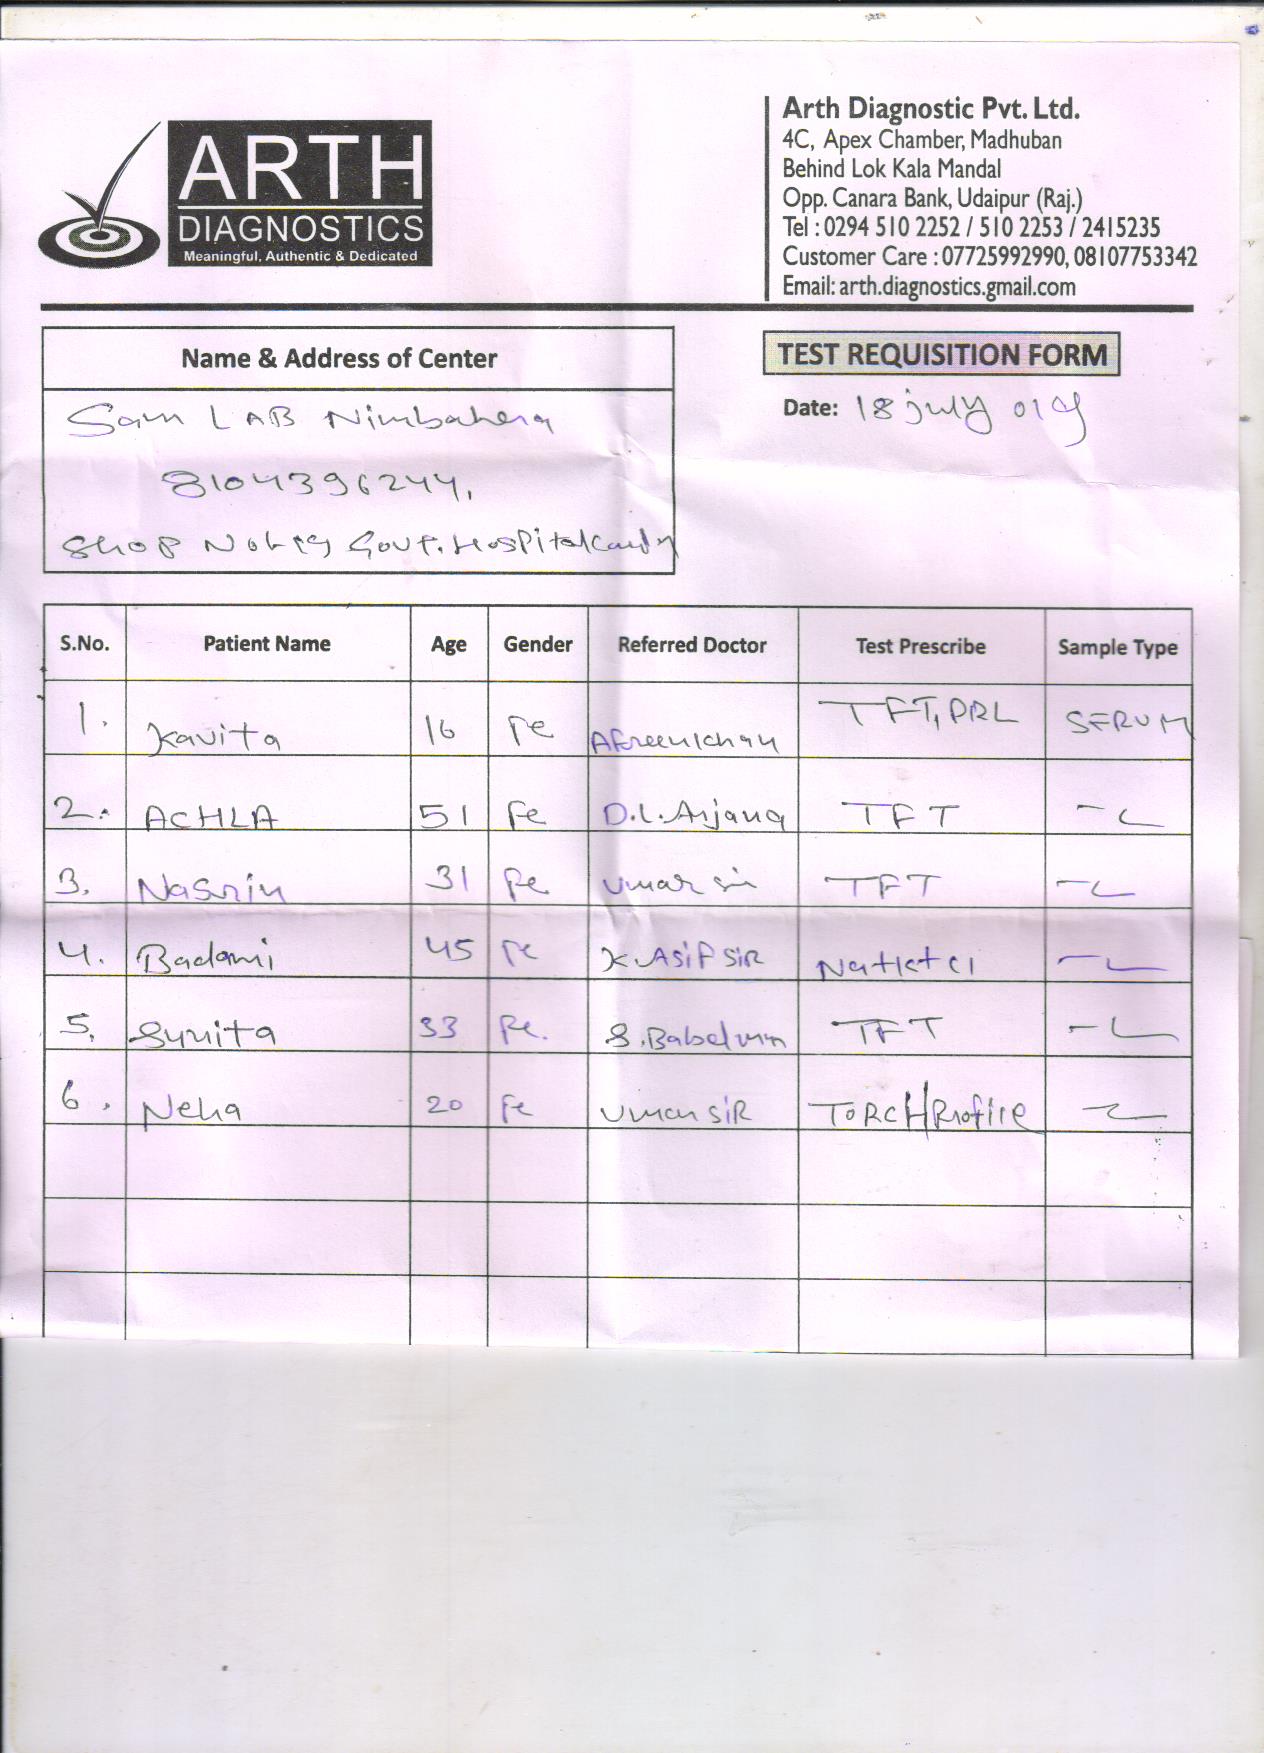 ARTH
DIAGNOSTICS
Meaningful, Authentic & Dedicated
Arth Diagnostic Pvt. Ltd.
4C, Apex Chamber, Madhuban
Behind Lok Kala Mandal
Opp. Canara Bank, Udaipur (Raj.)
Tel : 0294 510 2252 / 510 2253 / 2415235
Customer Care : 07725992990, 08107753342
Email: arth.diagnostics.gmail.com
Name & Address of Center
Sam LAB Nimbahera
8104396244,
Shop No Govt. Hospital
TEST REQUISITION FORM
Date: 18 july 019
S.No. Patient Name Age Gender Referred Doctor Test Prescribe Sample Type
1. Kavita 16 Fe Afreenkhan TFT, PRL SERUM
2. ACHLA 51 Fe D.L. Anjana TFT
3. Nasrin 31 Fe Umar sir TFT
4. Badami 45 Fe K. Asif SIR Na+k+cl
5. Sunita 33 Fe. S. TFT
6. Neha 20 Fe Umar SIR TORCH Profile